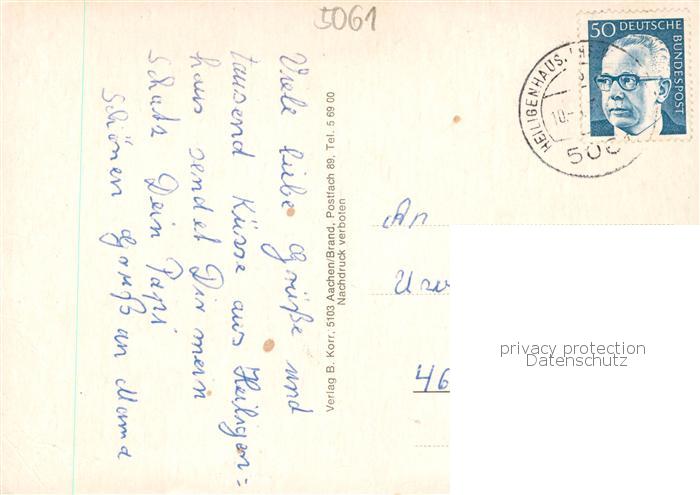 5061
50 DEUTSCHE BUNDESPOST
HEILIGENHAUS,
10.-
Viele liebe Grüße und
tausend Küsse aus Heiligen=
haus sendet Dir mein
Schatz Dein Papi
Schönen Gruß an Mama
Verlag B. Korr, 5103 Aachen/Brand, Postfach 89, Tel. 5 69 00
Nachdruck verboten
An
46
privacy protection
Datenschutz